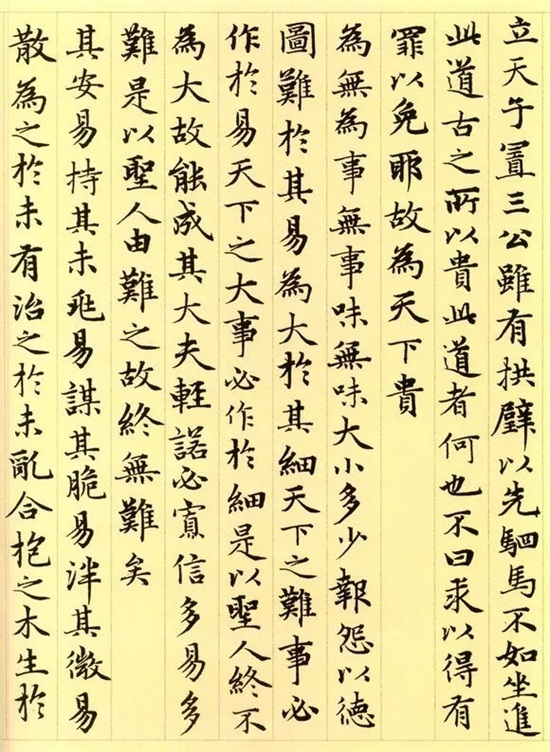 立天子置三公雖有拱璧以先駟馬不如坐進
此道古之所以貴此道者何也不曰求以得有
罪以免耶故為天下貴
為無為事無事味無味大小多少報怨以徳
圖難於其易為大於其細天下之難事必
作於易天下之大事必作於細是以聖人終不
為大故能成其大夫輕諾必寡信多易多
難是以聖人由難之故終無難矣
其安易持其未兆易謀其脆易泮其微易
散為之於未有治之於未亂合抱之木生於